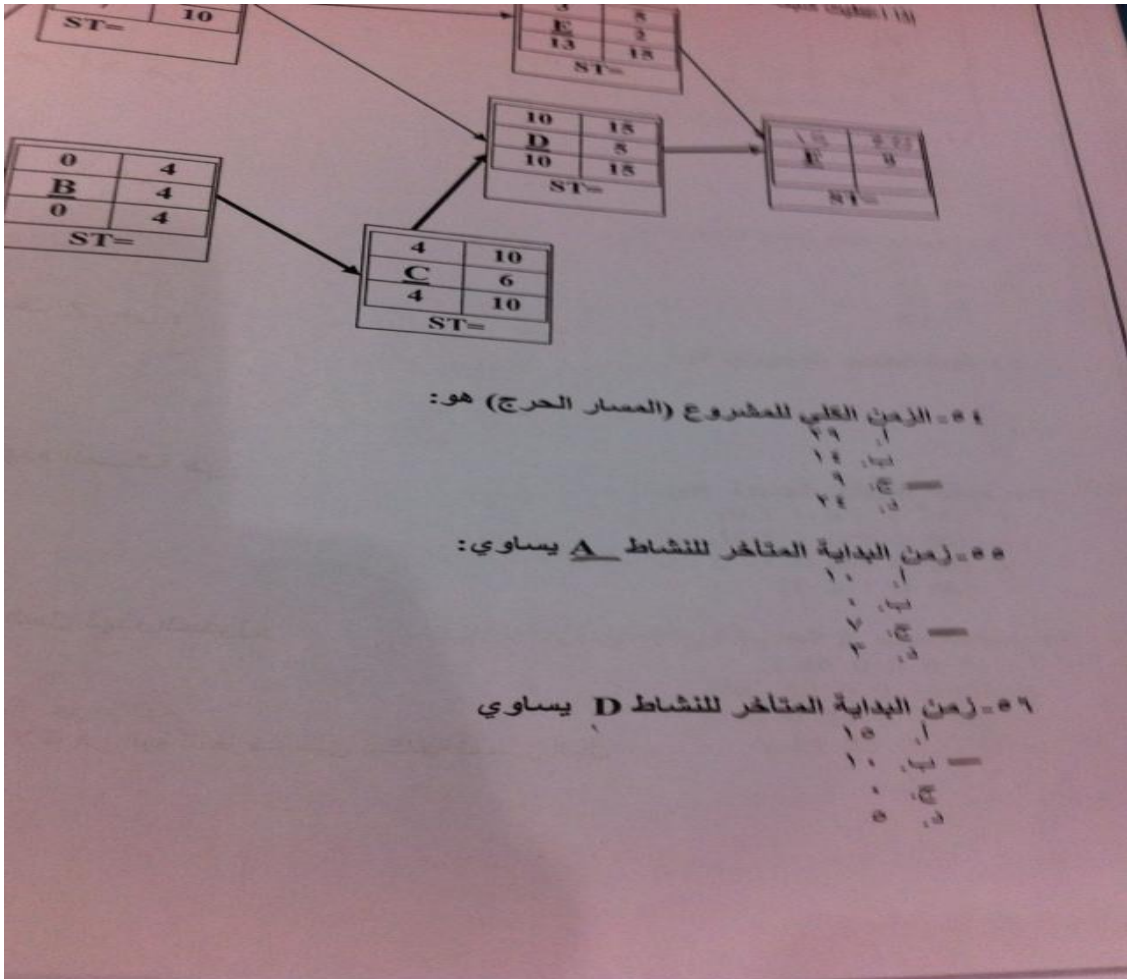 إذا
10
ST=
3 5
E 2
13 15
ST=
10 15
D 5
10 15
ST=
E
ST=
0 4
B 4
0 4
ST=
4 10
C 6
4 10
ST=
٥٤-الزمن الكلي للمشروع (المسار الحرج) هو:
أ. ٢٩
ب. ١٤
ج. ٩
د. ٢٤
٥٥-زمن البداية المتأخر للنشاط A يساوي:
أ. ١٠
ب. ٠
ج. ٧
د. ٣
٥٦-زمن البداية المتأخر للنشاط D يساوي
أ. ١٥
ب. ١٠
ج. ٠
د. ٥